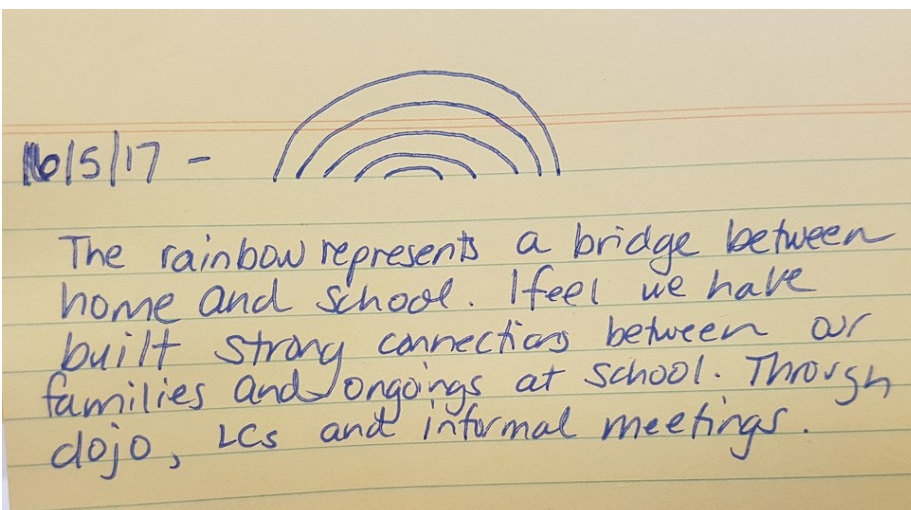 16/5/17 -
The rainbow represents a bridge between
home and school. I feel we have
built strong connections between our
families and ongoings at school. Through
dojo, LCs and informal meetings.